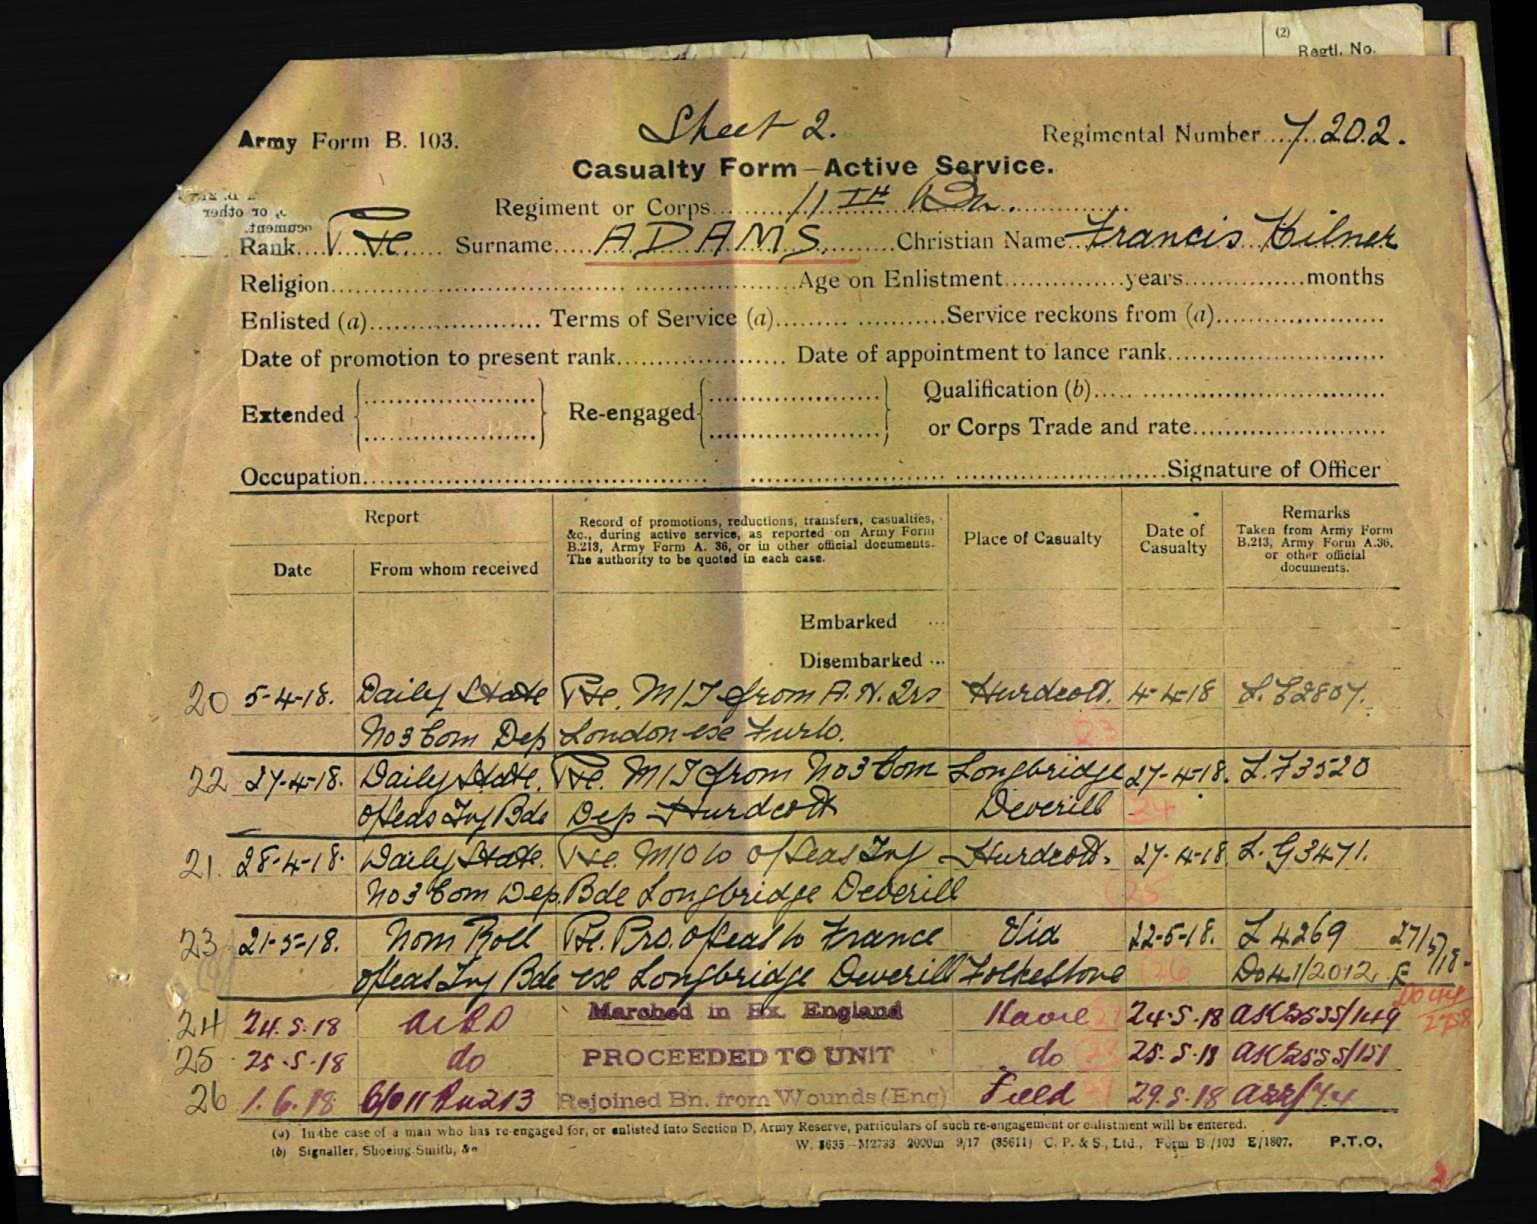 (2)
Regtl. No.
Army Form B. 103.
Sheet 2.
Regimental Number 7202.
Casualty Form—Active Service.
Regiment or Corps 11TH Bn.
Rank Pte Surname ADAMS Christian Name Francis Kilner
Religion Age on Enlistment years months
Enlisted (a) Terms of Service (a) Service reckons from (a)
Date of promotion to present rank Date of appointment to lance rank
Extended Re-engaged Qualification (b)
or Corps Trade and rate
Occupation Signature of Officer
Report
Date
From whom received
Record of promotions, reductions, transfers, casualties,
&c., during active service, as reported on Army Form
B.213, Army Form A. 36, or in other official documents.
The authority to be quoted in each case.
Place of Casualty
Date of
Casualty
Remarks
Taken from Army Form
B.213, Army Form A.36,
or other official
documents.
Embarked ...
Disembarked ...
20 5-4-18. Daily State Pte. M/I from A.H.Qrs Hurdcott. 4-4-18 L.E2807.
No 3 Com Dep London ex Furlo. 23
22 27-4-18. Daily State. Pte. M/I from No 3 Com Longbridge 27-4-18. L.F3520
O/seas Trg Bde Dep Hurdcott Deverill 24
21. 28-4-18. Daily State. Pte. M/O to O/seas Trg Hurdcott. 27-4-18. L.G3471.
No 3 Com Dep. Bde Longbridge Deverill 25
23 21-5-18. Nom Roll Pte. Pro. O/seas to France Via 22-5-18. L4269 27/5/18
O/seas Trg Bde ex Longbridge Deverill Folkestone 26 Do41/2012.
24 24.5.18 AIBD Marched in Ex. England Havre 24.5.18
25 25.5.18 do PROCEEDED TO UNIT do 25.5.18
26 1.6.18 C/O 11 Bn 213 Rejoined Bn. from Wounds (Eng) Field 29.5.18
(a) In the case of a man who has re-engaged for, or enlisted into Section D, Army Reserve, particulars of such re-engagement or enlistment will be entered.
(b) Signaller, Shoeing Smith, &c
W. 8635—M2733 2000m 9/17 (35611) C. P. & S., Ltd., Form B/103 E/1807. P.T.O.